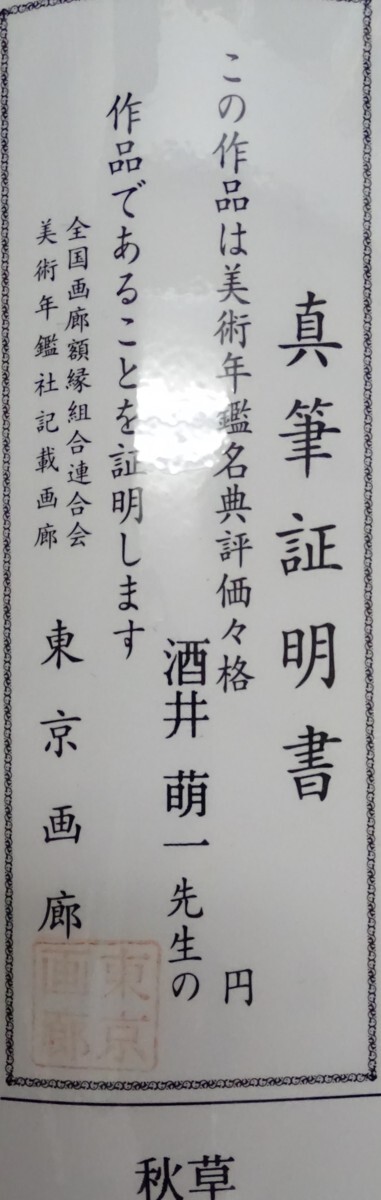 真筆証明書
この作品は美術年鑑名典評価々格　円
酒井 萌一先生の
作品であることを証明します
全国画廊額縁組合連合会
美術年鑑社記載画廊
東京画廊
東京画廊
秋草